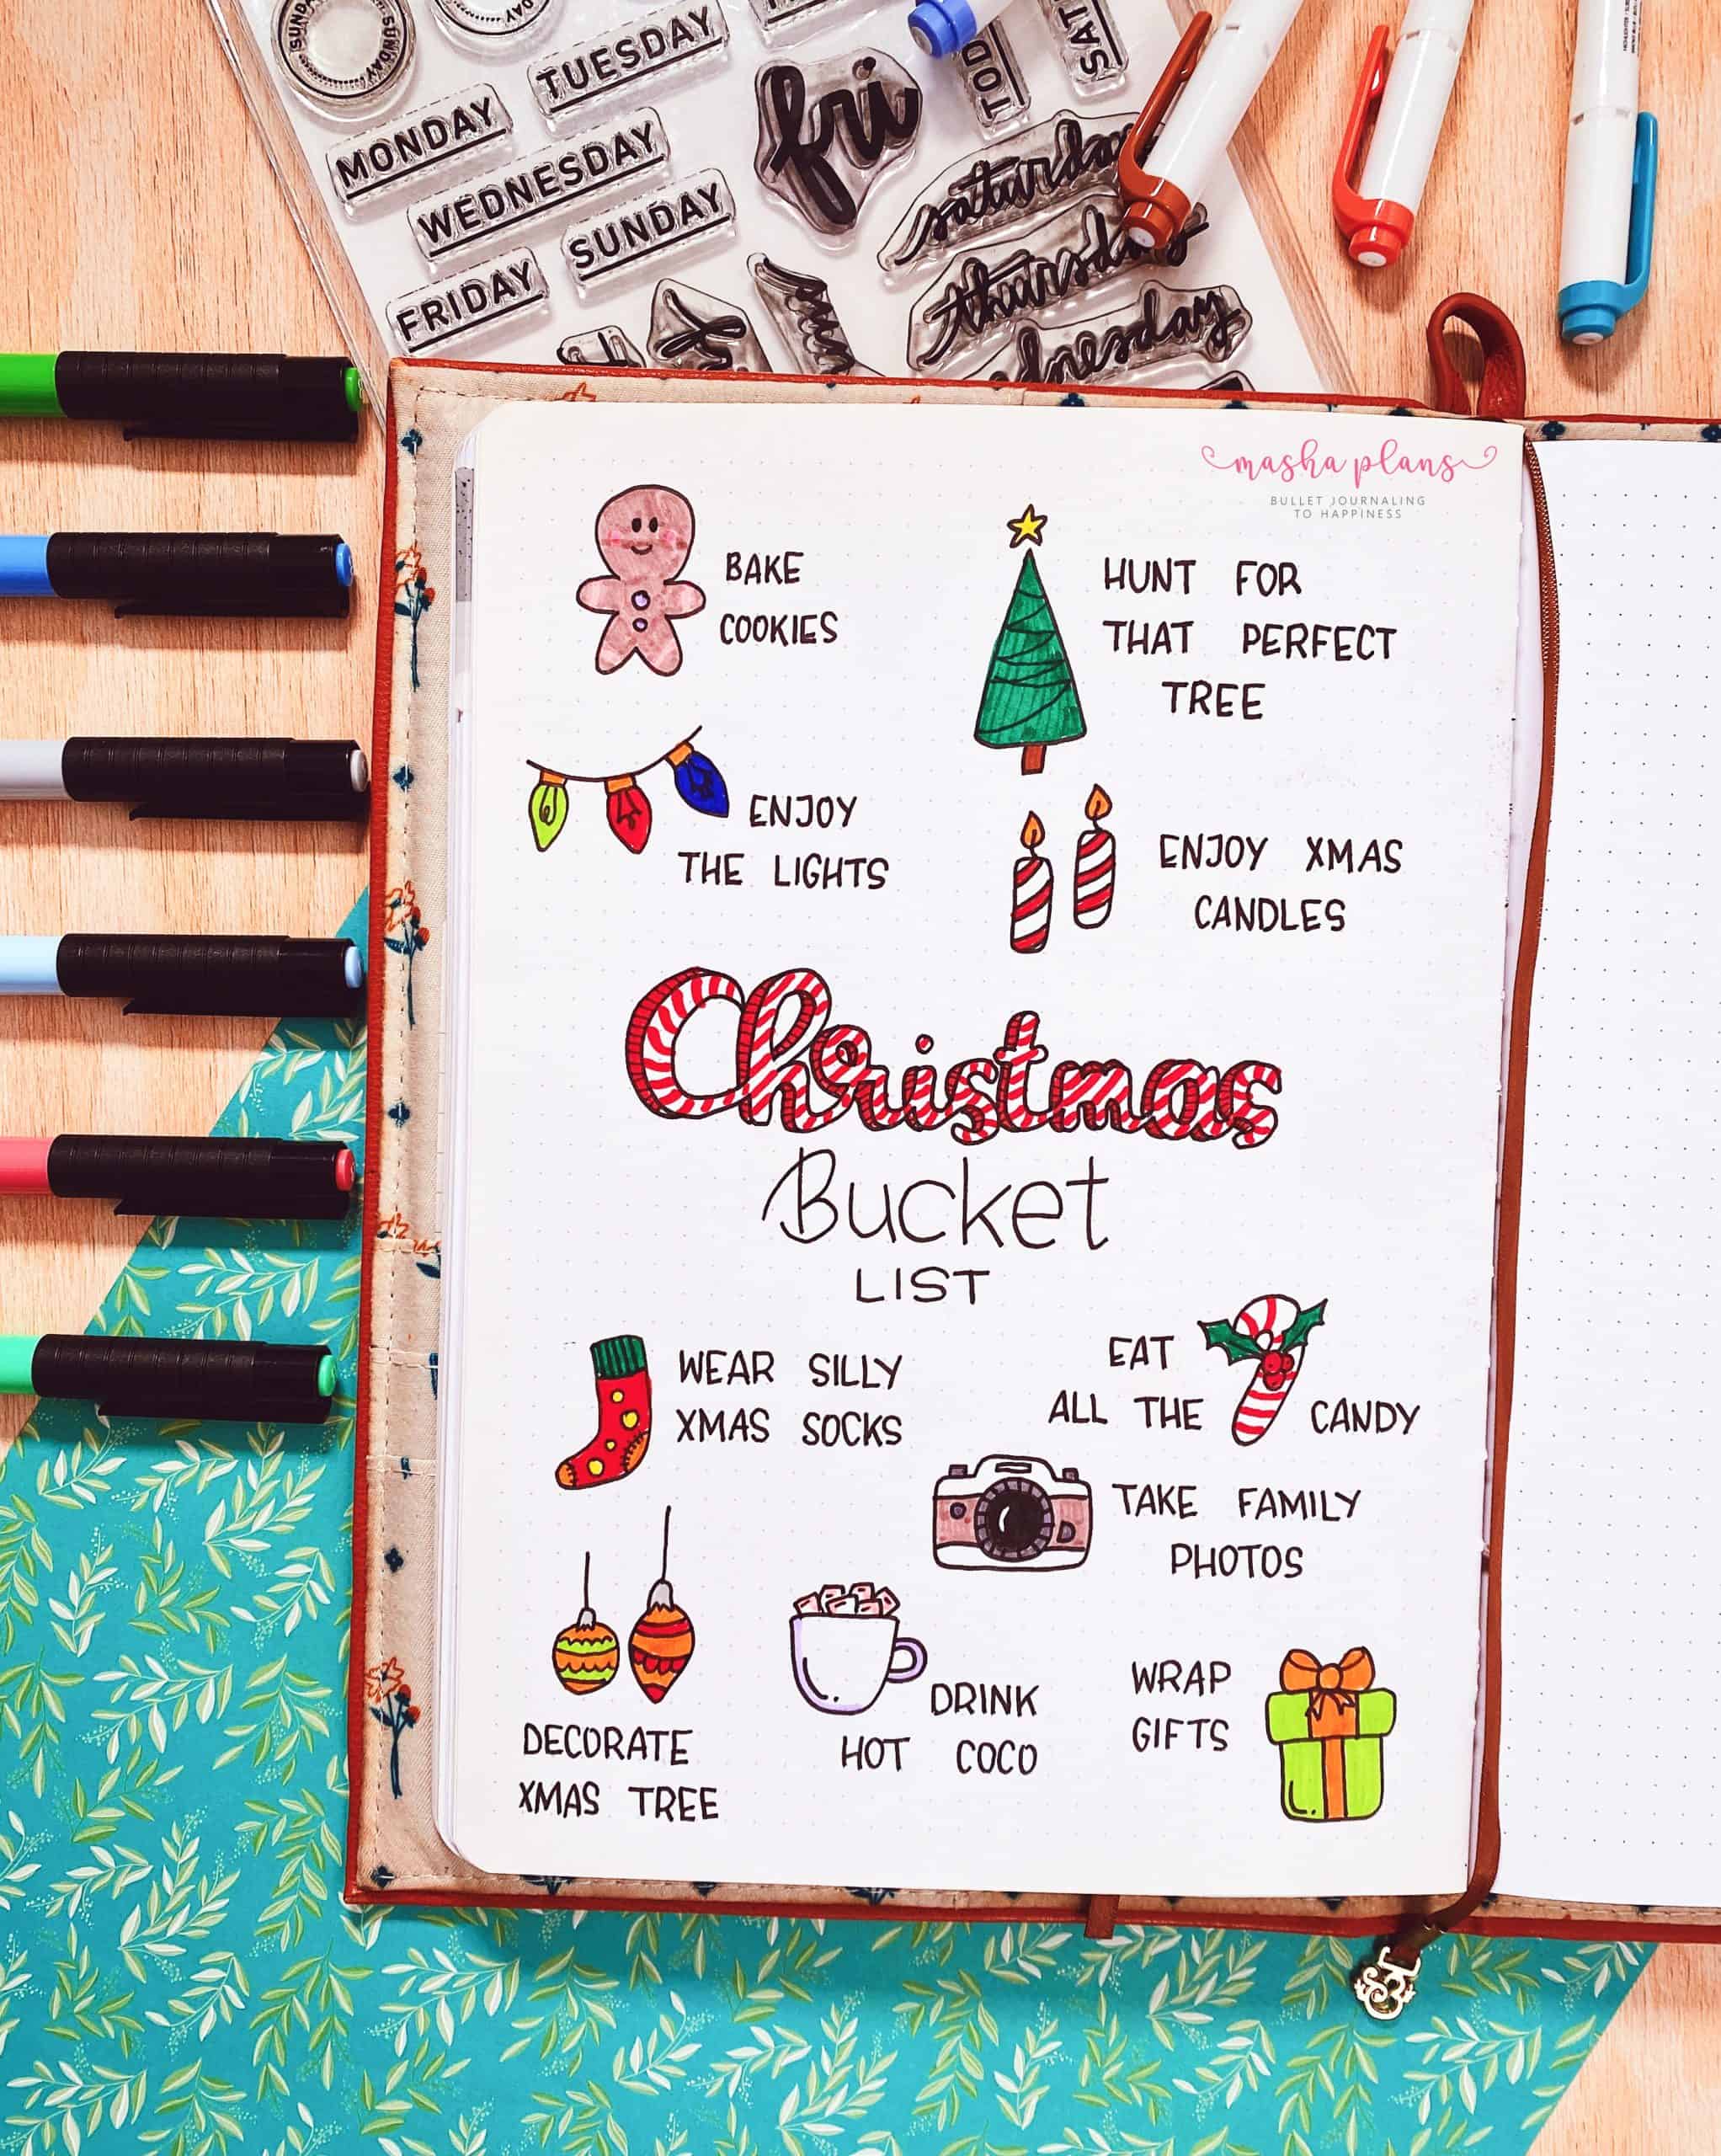 SUNDAY
SUNDAY
DAY
MONDAY
TUESDAY
WEDNESDAY
SUNDAY
FRIDAY
fri
TOD
SAT
saturday
thursday
dnesday
masha plans
BULLET JOURNALING
TO HAPPINESS
BAKE
COOKIES
HUNT FOR
THAT PERFECT
TREE
ENJOY
THE LIGHTS
ENJOY XMAS
CANDLES
Christmas
Bucket
LIST
WEAR SILLY
XMAS SOCKS
EAT
ALL THE CANDY
TAKE FAMILY
PHOTOS
DECORATE
XMAS TREE
DRINK
HOT COCO
WRAP
GIFTS